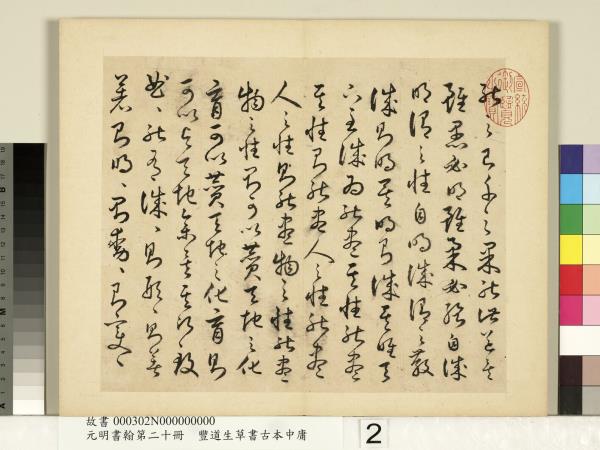 能之己千之果能此道矣
雖愚必明雖柔必強自誠
明謂之性自明誠謂之教
誠則明矣明則誠矣唯天
下至誠為能盡其性能盡
其性則能盡人之性能盡
人之性則能盡物之性能盡
物之性則可以贊天地之化
育可以贊天地之化育則
可以與天地參矣其次致
曲〻能有誠〻則形〻則著
著則明〻則動〻則變〻
故書 000302N000000000
元明書翰第二十冊 豐道生草書古本中庸
2